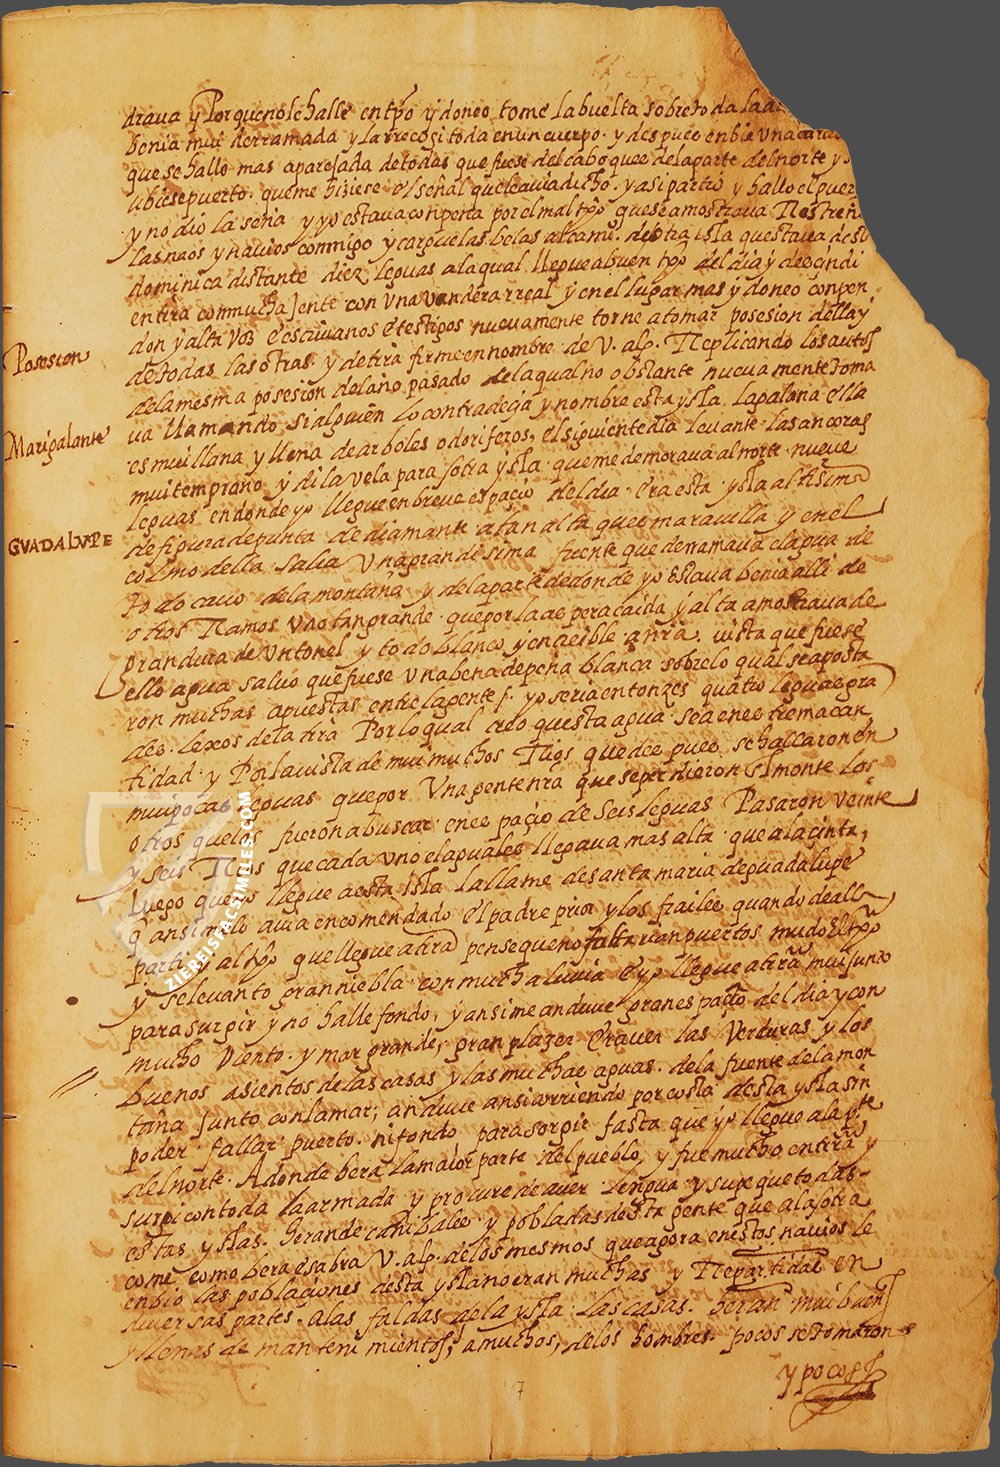 draua y Porque no le halle en tpo ydoneo tome la buelta sobre toda la a
benia mui derramada y la rrecogi toda en un cuerpo. y despues enbie una carau
que se hallo mas aparejada de todas que fuese del cabo ques de la parte del norte y s
ubiese puerto. que me hiziese el señal que le auia dicho. y asi partio y hallo el puer
y no dio la seña y yo estaua con pena por el mal tpo que se amostraua
las naos y nauios conmigo y cargue las belas al cami. de otra isla que estaua desta
dominica distante diez leguas a la qual llegue a buen tpo del dia y decendi
en tira con mucha jente con una vandera rreal y en el lugar mas ydoneo con pen
don y alta voz e escriuanos e testigos nueuamente torne a tomar posesion della y
Posesion
de todas las otras. y de tira firme en nombre de V. alp. Replicando los autos
de la mesma posesion del año pasado de la qual no obstante nueuamente toma
ua llamando si alguien lo contradezia y nombre esta ysla. la galana ella
Marigalante
es mui llana y llena de arboles odoriferos, el siguiente dia leuante las ancoras
mui temprano y di la vela para sotra ysla. que me demoraua al norte nueue
leguas en donde yo llegue en breue espaçio del dia. era esta ysla altisima
GVADALVPE
de figura de punta de diamante a tan alta que es marauilla y en el
colmo della salia una grandisima fuente que derramaua el agua de
todo cauo de la montaña y de la parte de donde yo estaua benia alli de
otros Ramos uno tan grande. que por la aspera caida y alta amostraua de
grandura de un tonel y todo blanco y encreible a ñra. vista que fuese
ello agua saluo que fuese una bena de peña blanca sobre lo qual se aposta
ron muchas apuestas entre la gente s. yo seria entonzes quatro leguas gra
des. lexos de la tira Por lo qual creo questa agua. sea en estrema can
tidad y Por la uista de mui muchos Rios que despues se hallaron en
mui pocas leguas que por una gente nra que se perdieron al monte los
otros que los fueron a buscar en espaçio de seis leguas Pasaron veinte
y seis Rios que cada uno el agua les llegaua mas alta que a la cinta,
luego que yo llegue a esta isla la llame de santa maria de guadalupe
q ansi me lo auia encomendado el padre prior y los frailes quando de alli
parti. y al tpo que llegue a tira pense que no faltarian puertos mudo el tpo
y se leuanto gran niebla. con mucha lluuia e yo llegue a tira mui junto
para surgir y no halle fondo, y ansi me anduue gran espaçio del dia y con
mucho viento. y mar grande, gran plazer era uer las verduras y los
buenos asientos de las casas y las muchas aguas. de la fuente de la mon
taña junto con la mar; anduue ansi corriendo por costa desta ysla sin
poder fallar puerto. ni fondo para sorgir fasta que yo llegue a la pte
del norte. Adonde hera la maior parte del pueblo y fue mucho en tira y
surgi con toda la armada y procure de auer lengua y supe que todas
estas yslas. heran de canibales y pobladas desta gente que a la otra
come como hera e sabra V. alp. de los mesmos que agora en estos nauios le
enbio las poblaçiones desta ysla no eran muchas y Repartidas en
diuersas partes. a las faldas de la ysla. las casas. heran mui buenas
y llenas de mantenimientos; a muchos, de los hombres. pocos se tomaron
y pocos f
7
ZIEREISFACSIMILES.COM